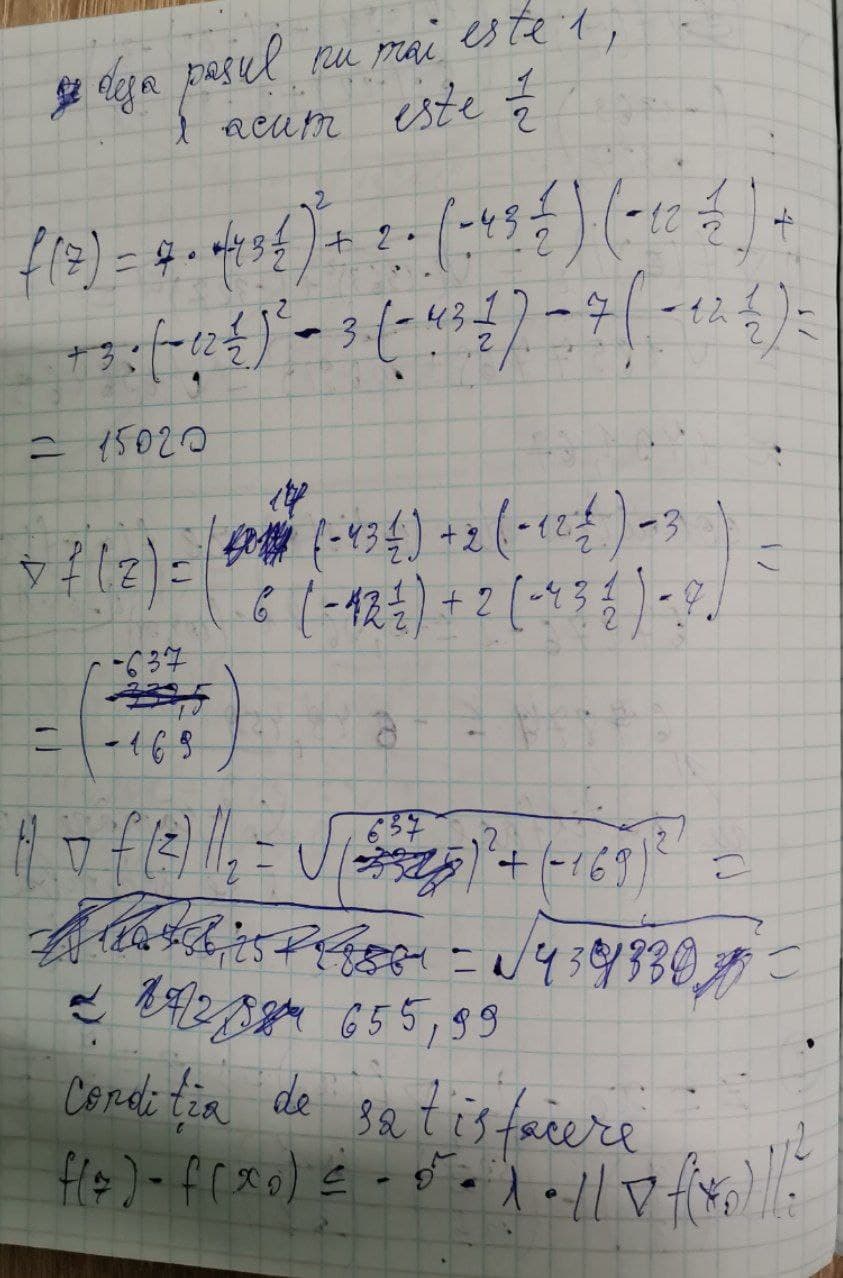 deja pasul nu mai este 1,
λ acum este 1/2
f(z) = 7 · (-43 1/2)² + 2 · (-43 1/2) (-12 1/2) +
+ 3 · (-12 1/2)² - 3 (-43 1/2) - 7 (-12 1/2) =
= 15020
∇ f(z) = ( 14 (-43 1/2) + 2 (-12 1/2) - 3
6 (-12 1/2) + 2 (-43 1/2) - 7 ) =
= ( -637
-169 )
|| ∇ f(z) ||₂ = √(637)² + (-169)² =
= √434330 =
≈ 655,99
Condiția de satisfacere
f(z) - f(x₀) ≤ - δ · λ · || ∇ f(x₀) ||²